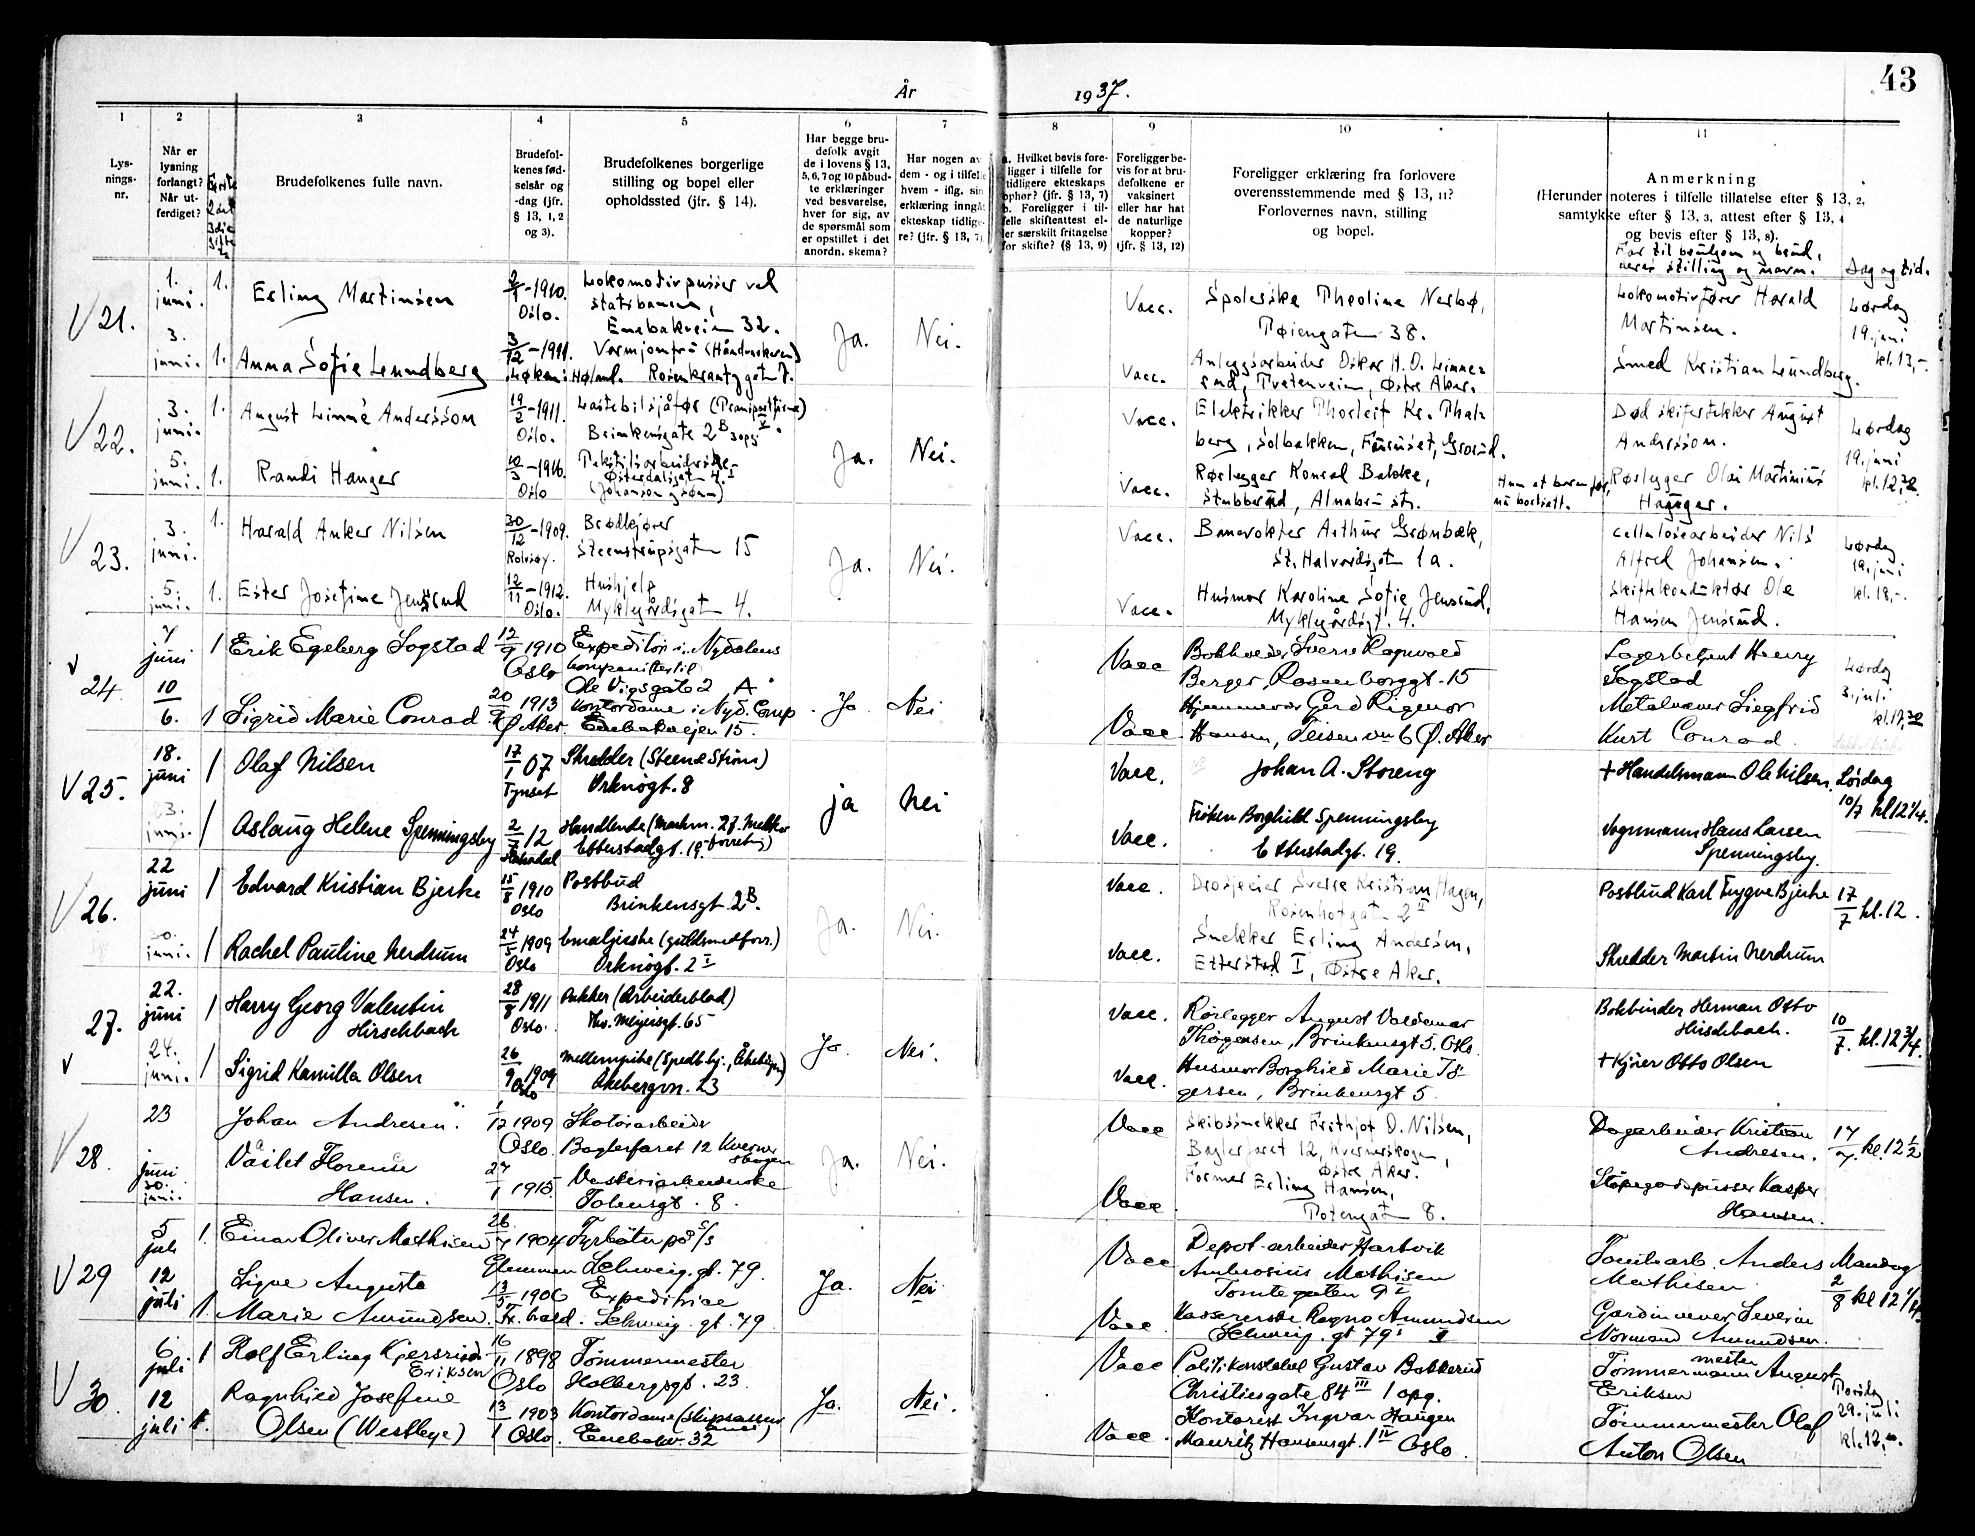 43
År
1937.
1
2
3
4
5
6
7
8
9
10
11
Lys-
nings-
nr.
Når er
lysning
forlangt?
Når ut-
ferdiget?
Brudefolkenes fulle navn.
Brudefol-
kenes fød-
selsår og
-dag (jfr.
§ 13, 1, 2
og 3).
Brudefolkenes borgerlige
stilling og bopel eller
opholdssted (jfr. § 14).
Har begge bru-
defolk avgit
de i lovens § 13,
5, 6, 7 og 10 påbud-
te erklæringer
ved besvarelse,
hver for sig, av
de spørsmål som
er opstillet i det
anordn. skema?
Har nogen av
dem - og i tilfelle
hvem - iflg. sin
erklæring inngåt
ekteskap tidlige-
re? (jfr. § 13, 7)
a. Hvilket bevis fore-
ligger i tilfelle for
tidligere ekteskaps
ophør? (jfr. § 13, 7)
b. Foreligger i til-
felle skifteattest el-
ler særskilt fritagelse
for skifte? (§ 13, 9)
Foreligger be-
vis for at bru-
defolkene er
vaksinert
eller har hat
de naturlige
kopper?
(jfr. § 13, 12)
Foreligger erklæring fra forlovere
overensstemmende med § 13, 11?
Forlovernes navn, stilling
og bopel.
Anmerkning
(Herunder noteres i tilfelle tillatelse efter § 13, 2,
samtykke efter § 13, 3, attest efter § 13, 4
og bevis efter § 13, 8).
Far til brudgom og brud,
deres stilling og navn.
Dag og tid.
V 21.
1.
juni.
1.
Erling Martinsen
1910.
Oslo.
Lokomotivpusser ved
statsbanen,
Enebakveien 32.
3.
juni.
1.
Anna Sofie Lundberg
3/12-1911.
Rosenkrantzgaten 7.
Ja.
Nei.
Vacc.
Spolerske Theoline Nesbø,
Tøiengaten 38.
Vacc.
Anleggsarbeider Oskar H. O. Linne-
rud, Tvetenveien, Østre Aker.
Lokomotivfører Harald
Martinsen.
Smed Kristian Lundberg.
Lørdag
19. juni
kl. 13,-
V 22.
3.
juni.
1.
August Linné Andersson
19/2-1911.
Oslo.
Lastebilsjåfør
Brinkensgate 2B
5.
juni.
1.
Randi Hauger
10/3-1916.
Oslo
Tekstilarbeiderske
Østerdalsgaten 4.
(Johansen & sønn)
Ja.
Nei.
Vacc.
Elektriker Thorleif Kr. Thal-
berg, Solbakken, Furuset, Grorud.
Vacc.
Rørlegger Konrad Bakke,
Stubberud, Alnabru st.
Hun et barn før,
nu bortsatt.
Død skifertekker August
Andersson.
Rørlegger Olai Martinius
Hauger.
Lørdag
19. juni
kl. 12,30.
V 23.
3.
juni.
1.
Harald Anker Nilsen
30/12-1909.
Rolvsøy.
Brødkjører
Steenstrupsgaten 15
5.
juni.
1.
Ester Josefine Jensrud
12/11-1912.
Oslo.
Hushjelp
Myklegårdsgaten 4.
Ja.
Nei.
Vacc.
Banevokter Arthur Grønbæk,
St. Halvardsgaten 1a.
Vacc.
Husmor Karoline Sofie Jensrud,
Myklegårdsgt. 4.
Cellulosearbeider Nils
Alfred Johansen.
Skiftekonduktør Ole
Hansen Jensrud.
Lørdag
19. juni
kl. 18,-.
V
24.
7
juni
1
Erik Egeberg Sogstad
12/9 1910
Oslo
Expeditør i Nydalens
kompanis
Ole Vigsgate 2 A
10/6.
1
Sigrid Marie Conrad
20 1913
Ø. Aker
Kontordame i Nyd. Comp.
Enebakveien 15.
Ja
Nei
Vacc
Bokholder Sverre Ragnvald
Berger, Rosenborggt. 15
Vacc
Hjemmevær Gerd Rigmor
Hansen, Teisenvn 6 Ø. Aker
Lagerbetjent Henry
Sogstad
Metalvarer Siegfrid
Kurt Conrad.
Lørdag
3. juli
kl. 17,30
V 25.
18.
juni
1
Olaf Nilsen
17/1 07
Tynset
Skredder (Steen & Strøm)
Orknøgt. 8
23.
juni.
1
Aslaug Helene Spenningsby
2/7 12
Etterstadgt. 19.
ja
nei
Vacc.
Johan A. Storeng
Vacc.
Frøken Borghild Spenningsby
Etterstadgt. 19.
+ Handelsmann Ole Nilsen
Vognmann Hans Larsen
Spenningsby.
Lørdag
10/7 kl 12 1/4.
V 26.
22
juni
1
Edvard Kristian Bjerke
15/8 1910
Oslo
Postbud
Brinkensgt. 2B.
30.
juni.
1
Rachel Pauline Nerdrum
24/5 1909
Oslo
Emaljerske (guldsmedforr.)
Orknøgt. 2 I
Ja.
Nei.
Vacc.
Drosjeeier Sverre Kristian Hagen,
Rosenhofgaten 2 II
Vacc.
Snekker Erling Andersen,
Etterstad I, Østre Aker.
Postbud Karl Trygve Bjerke
Skredder Martin Nerdrum
17/7 kl. 12.
27.
V
22.
juni
1
Harry Georg Valentin
Hirschbach
28/8 1911
Oslo.
Pakker (Arbeiderblad)
Ths. Meyersgt. 65
24.
juni.
1
Sigrid Kamilla Olsen
26/9 1909
Oslo
Ekebergvn. 23
Ja.
Nei.
Vacc.
Rørlegger August Valdemar
Thøgersen, Brinkensgt 5. Oslo
Vacc.
Husmor Borghild Marie Tø-
gersen, Brinkensgt 5
Bokbinder Herman Otto
Hirschbach.
+ Kjører Otto Olsen
10/7. kl. 12 3/4.
V 28.
23
juni
Johan Andresen.
1909
Oslo.
Skotøiarbeider
Baglerfaret 12 Kverner-
skogen
30.
juni.
Våilet Florence
Hansen.
27/1 1915
Vaskeriarbeiderske
Totensgt. 8.
Ja.
Nei.
Vacc
Skibssnekker Frithjof D. Nilsen,
Baglerfaret 12, Kvernerskogen,
Østre Aker.
Vacc
Former Erling Hansen,
Totengaten 8.
Dagarbeider Kristian
Andresen.
Støpegodspusser Kasper
Hansen.
17/7. kl. 12 1/2
V 29
5
juli
1.
Einar Oliver Mathisen
26 1904
Glemmen
Fyrbøter på S/s
Schweig. gt. 79.
12
juli
1
Signe Augusta
Marie Amundsen.
13/5 1906
Fr. hald.
Expeditrice
Schweig. gt. 79
Ja.
Nei
Vacc
Depot-arbeider Hartvik
Ambrosius Mathisen
Tomtegaten 9 I
Vacc.
Kassererske Ragna Amundsen
Schweig. gt 79 I
Tomtearb. Anders
Mathisen
Gardinvever Severin
Normand Amundsen.
Mandag
2/8 kl 12 1/4.
V
30.
6
juli
1
Rolf Erling Kjersrud
Eriksen
16/11 1898
Oslo
Tømmermester
Holbergsgt. 23.
12
juli
1.
Ragnhild Josefine
Olsen (Westbye)
13/1 1903
Oslo.
Kontordame
Enebakv. 32
Ja.
Nei.
Vacc
Politikonstabel Gustav Bakkerud
Christiesgate 84 III 1 opg.
Vacc.
Kontorist Ingvar Haugen
Mauritz Hansensgt. 1 IV Oslo.
Tømmermester August
Eriksen
Tømmermester Olaf
Anton Olsen
Torsdag
29. juli
kl. 12,-.